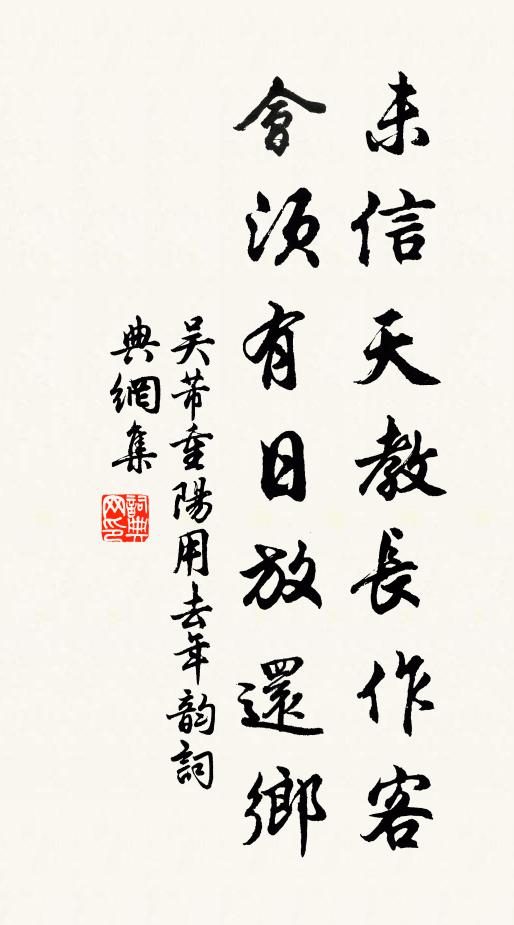 未信天教長作客
會須有日放還鄉
吳芾重陽用去年韵詞
典網集
詞典网印